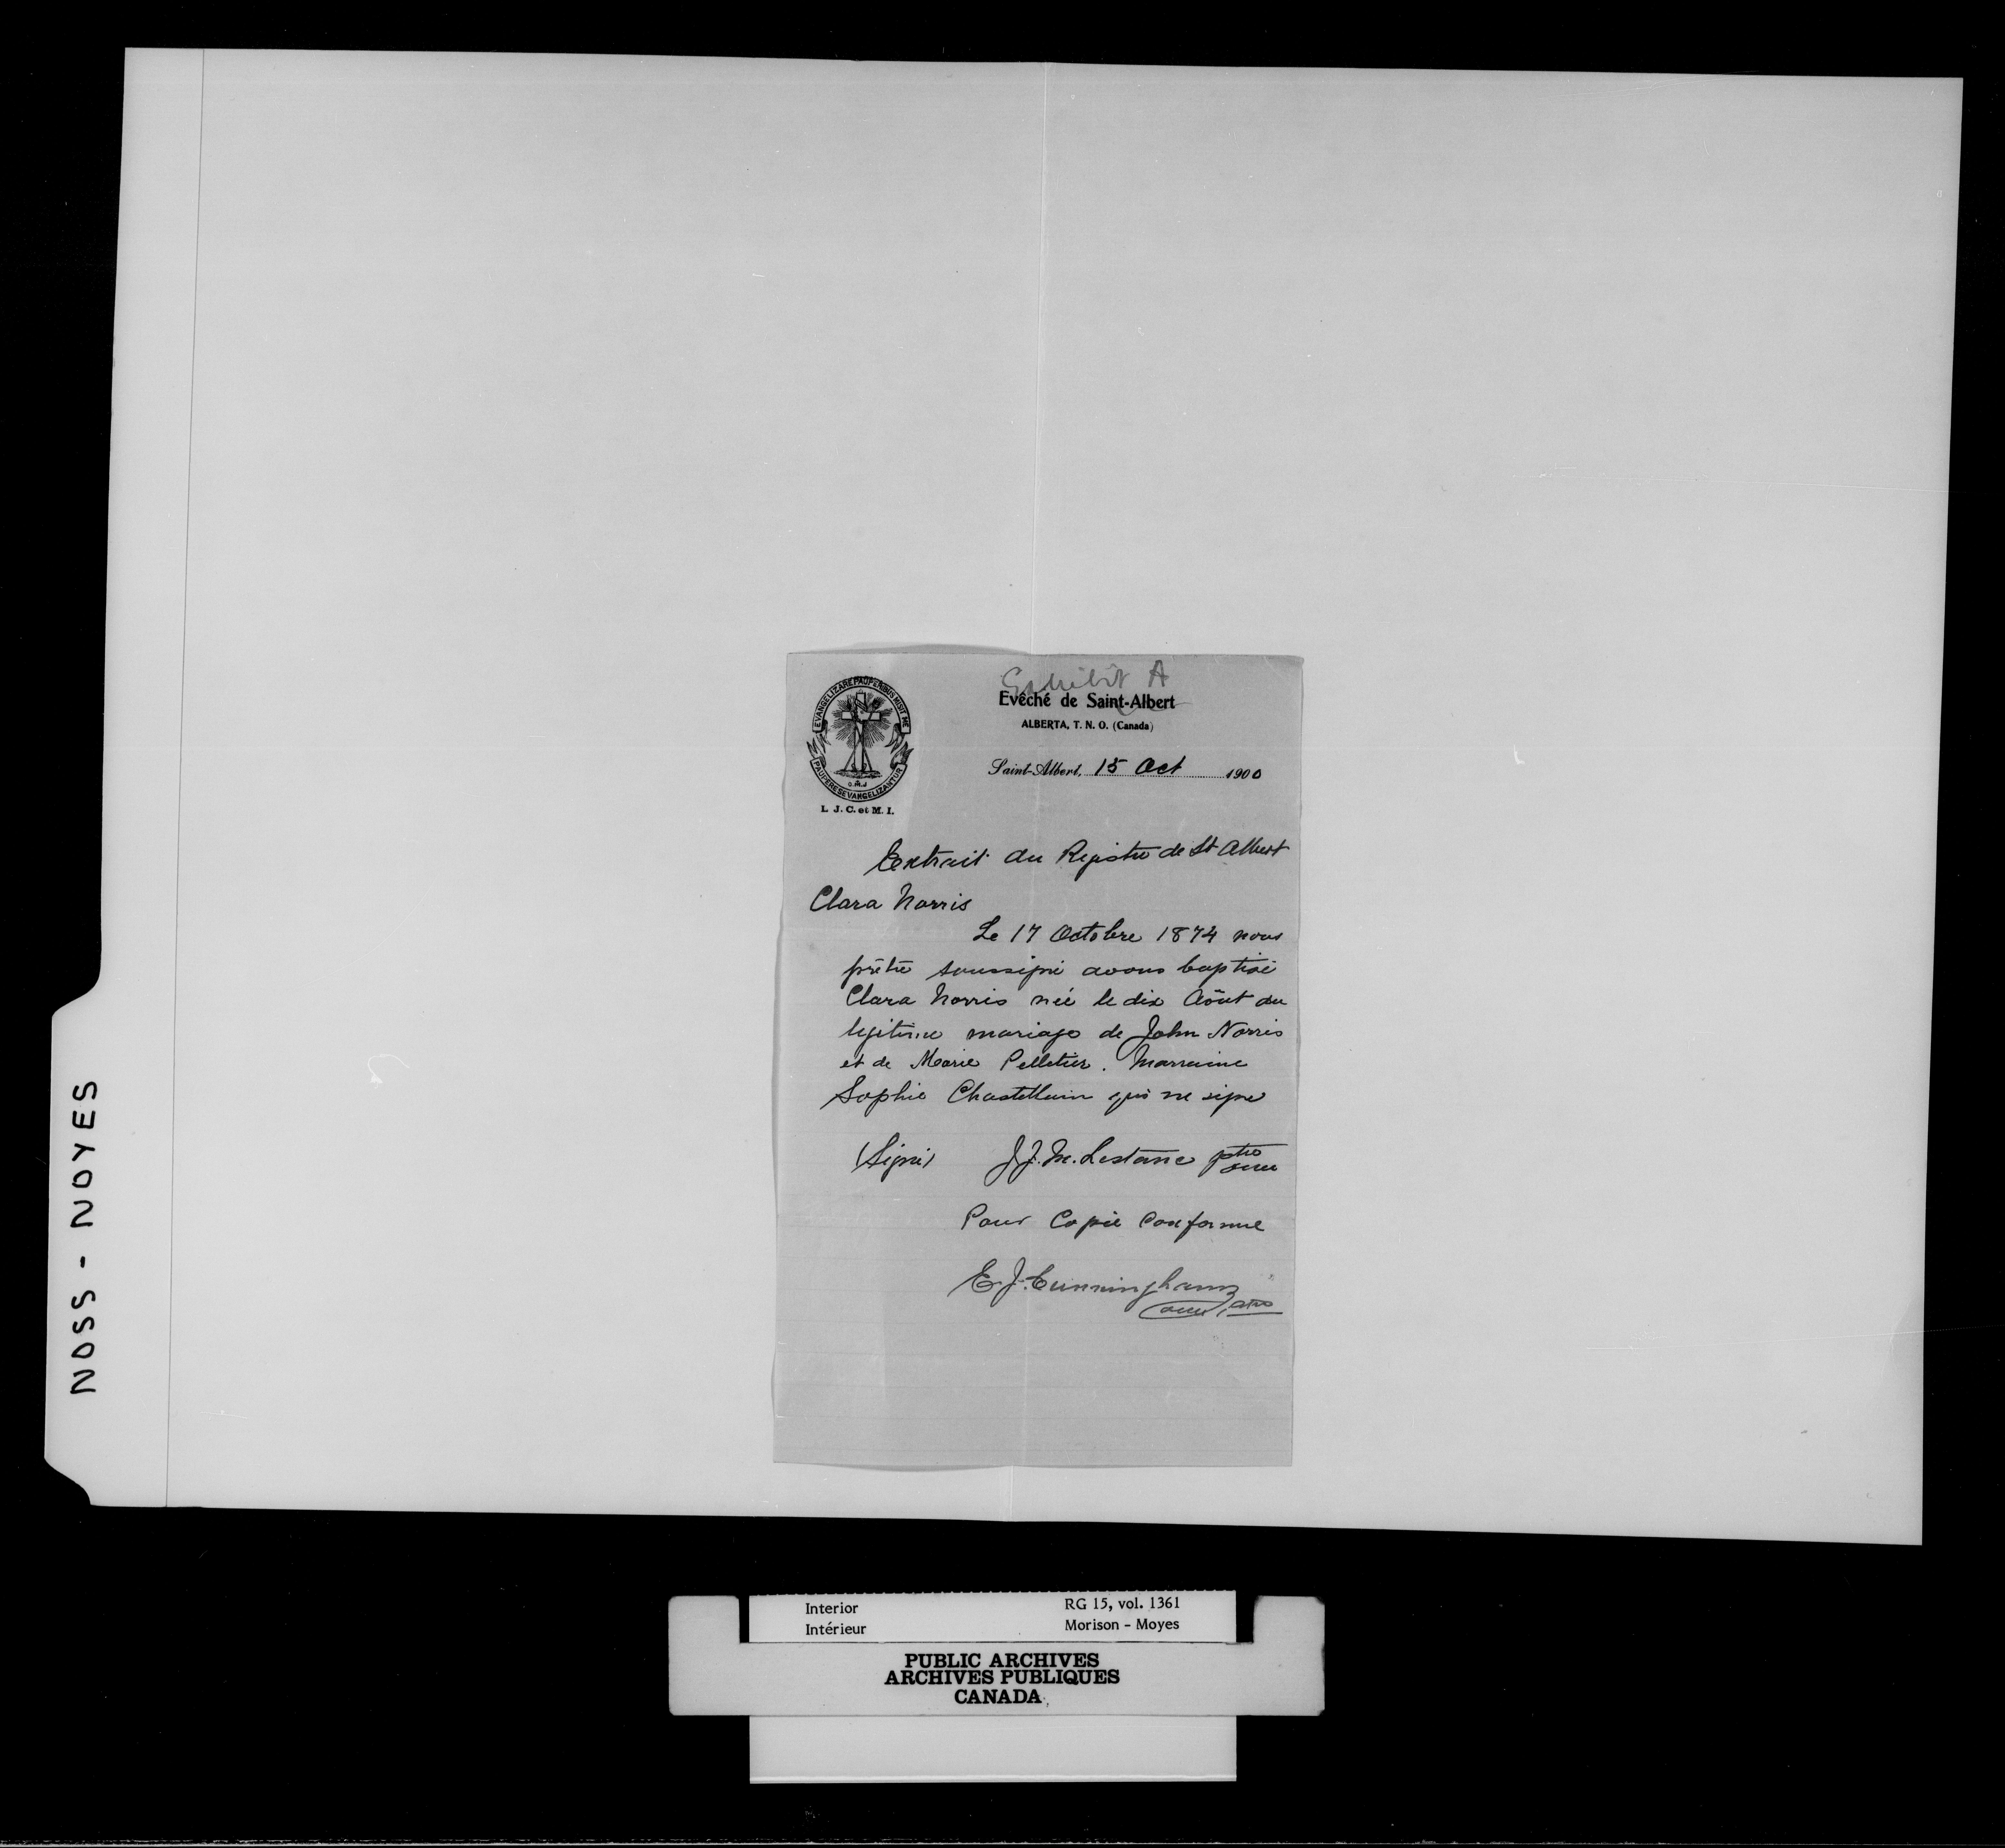 Exhibit A
EVANGELIZARE PAUPERIBUS MISIT ME
PAUPERES EVANGELIZANTUR
O.M.I
L. J. C. et M. I.
Evêché de Saint-Albert
ALBERTA, T. N. O. (Canada)
Saint-Albert, 15 Oct 1900
Extrait du Registre de St Albert
Clara Norris
Le 17 Octobre 1874 nous
prêtre soussigné avons baptisé
Clara Norris née le dix Août du
legitime mariage de John Norris
et de Marie Pelletier. Marraine
Sophie Chastellain qui ne signe
(Signé) J.J.M. Lestanc ptre
omi
Pour Copie Conforme
E.J. Cunningham
omi ptre
NOSS - NOYES
Interior RG 15, vol. 1361
Intérieur Morison - Moyes
PUBLIC ARCHIVES
ARCHIVES PUBLIQUES
CANADA